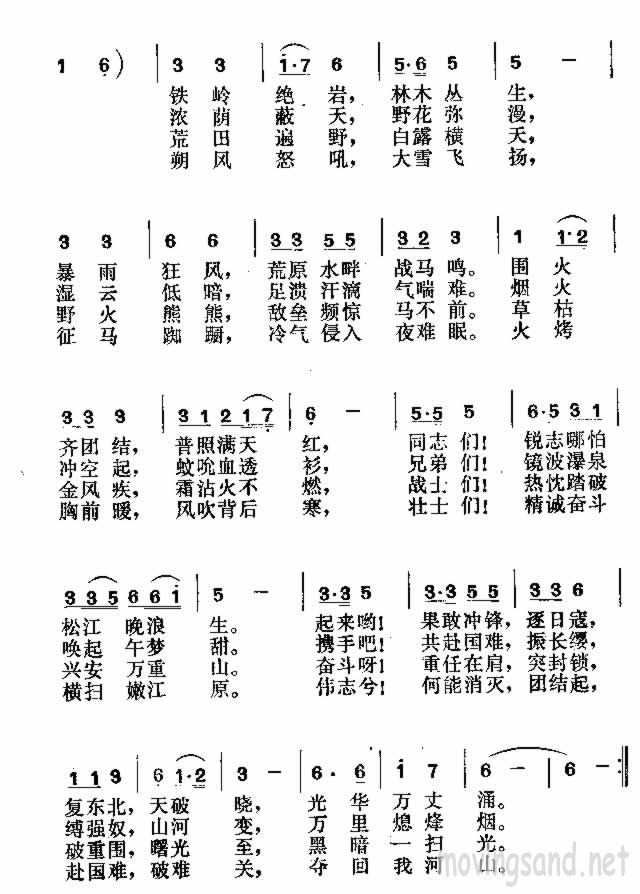 1 6) 3 3 1·7 6 5·6 5 5 —
铁 岭 绝 岩， 林木 丛 生，
浓 荫 蔽 天， 野花 弥 漫，
荒 田 遍 野， 白露 横 天，
朔 风 怒 吼， 大雪 飞 扬，
3 3 6 6 3 3 5 5 3 2 3 1 1·2
暴 雨 狂 风， 荒原 水畔 战马 鸣。 围 火
湿 云 低 暗， 足溃 汗滴 气喘 难。 烟 火
野 火 熊 熊， 敌垒 频惊 马不 前。 草 枯
征 马 踟 蹰， 冷气 侵入 夜难 眠。 火 烤
3 3 3 3 1 2 1 7 6 — 5·5 5 6·5 3 1
齐团 结， 普照满天 红， 同志 们！ 锐志哪怕
冲空 起， 蚊吮血透 衫， 兄弟 们！ 镜波瀑泉
金风 疾， 霜沾火不 燃， 战士 们！ 热忱踏破
胸前 暖， 风吹背后 寒， 壮士 们！ 精诚奋斗
3 3 5 6 6 1 5 — 3·3 5 6·3 5 5 3·2 1 2
松江 晚浪 生。 起来 哟！ 果敢冲锋， 逐日寇，
唤起 午梦 甜。 携手 吧！ 共赴国难， 振长缨，
兴安 万重 山。 奋斗 呀！ 重任在肩， 突封锁，
横扫 嫩江 原。 伟志 兮！ 何能消灭， 团结起，
1 1 3 6 1·2 3 — 6· 6 1 7 6 — 6 — :‖
复东北， 天破 晓， 光 华 万 丈 涌。
缚强奴， 山河 变， 万 里 熄 烽 烟。
破重围， 曙光 至， 黑 暗 一 扫 光。
赴国难， 破难 关， 夺 回 我 河 山。
movingsand.net